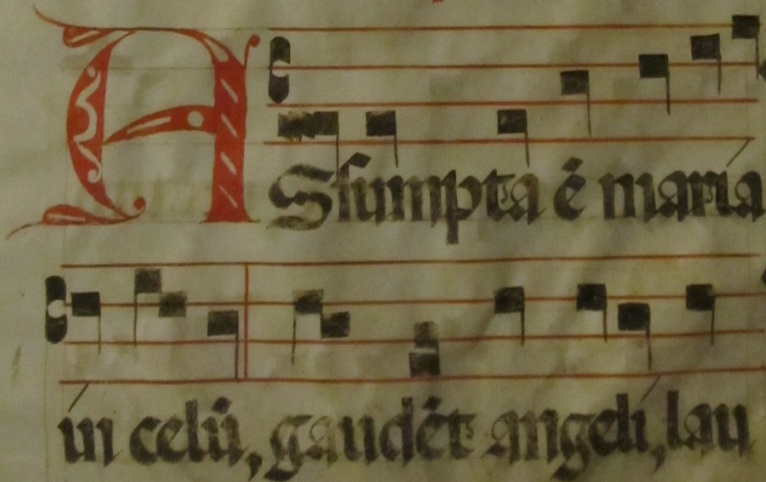 ASsumpta ē maria
in celū, gaudēt angeli, lau